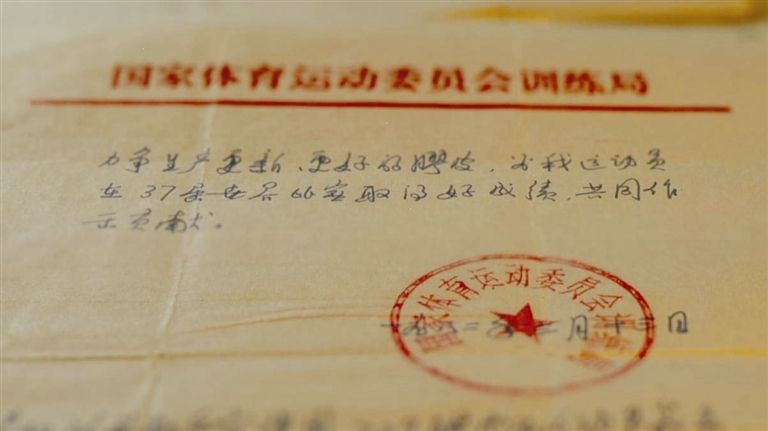 国家体育运动委员会训练局
力争生产更新、更好的膠皮，为我运动员
在37届世界比赛取得好成绩，共同作
出贡献。
国家体育运动委员会训练局
一九八二年二月十三日